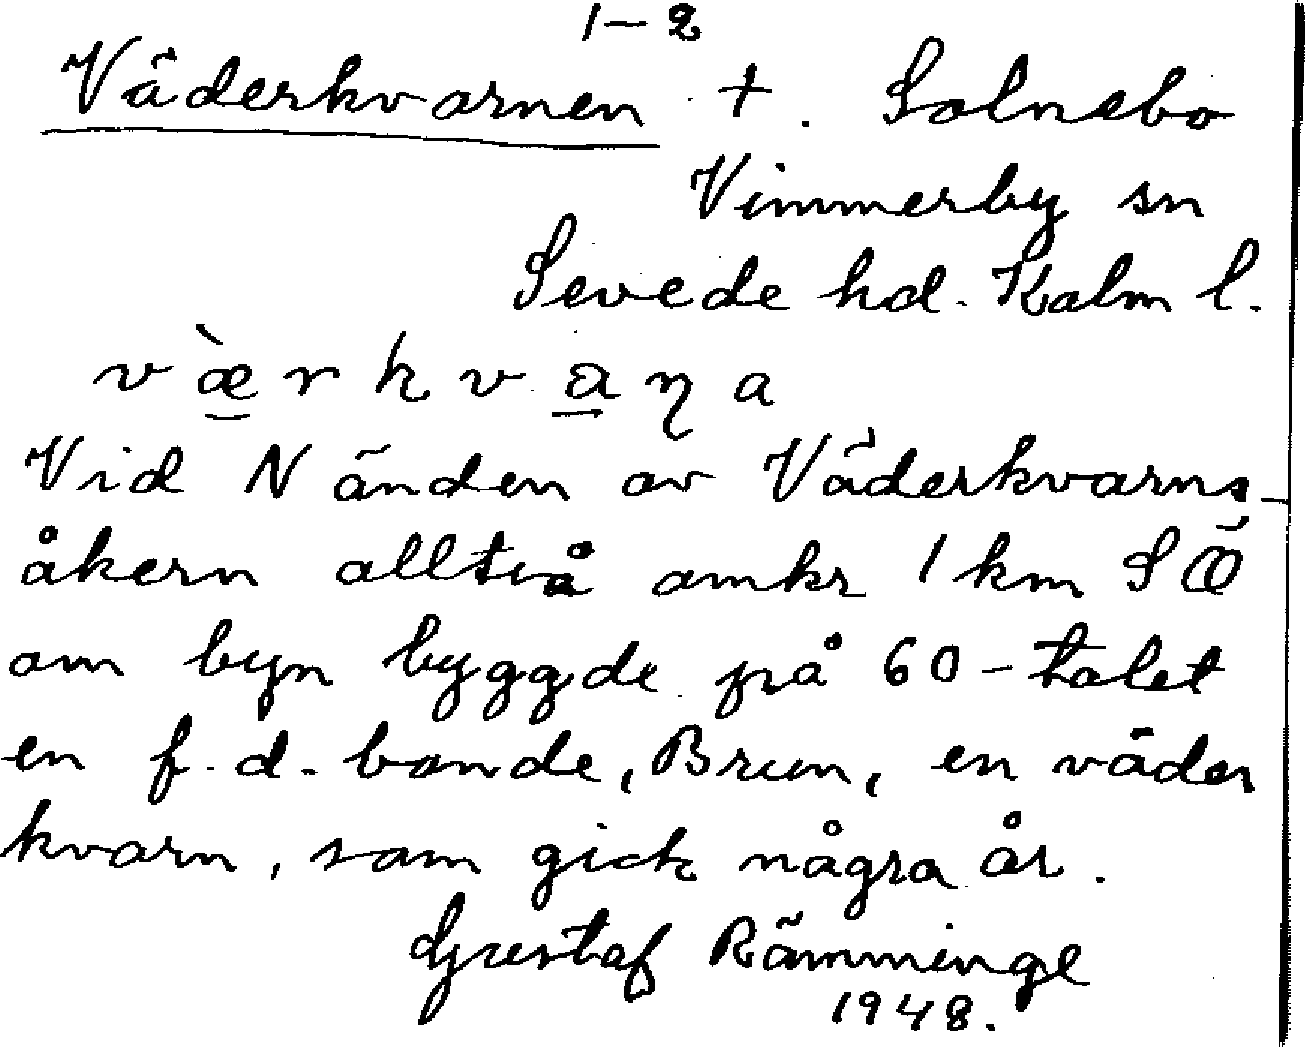 1–2
Väderkvarnen †. Solnebo
Vimmerby sn
Sevede hd. Kalm l.
væ̀rkvaɳa
Vid N änden av Väderkvarns-
åkern alltså omkr 1 km SÖ
om byn byggde på 60-talet
en f.d. bonde, Brun, en väder
kvarn, som gick några år.
Gustaf Rämminge
1948.